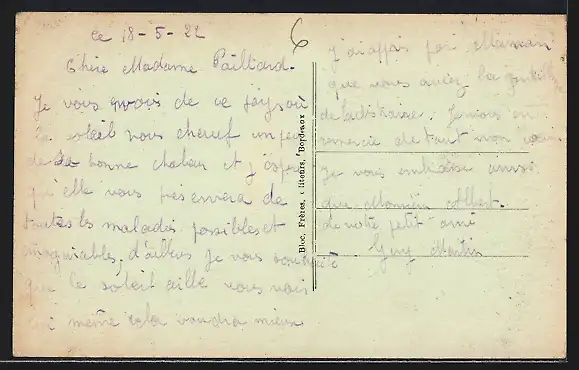 ce 18-5-22
6
Chère Madame Pailliard.
Je vous envois de ce pays où
le soleil nous chauf un peu
de sa bonne chaleur et j'espere
qu'elle vous préservera de
toutes les maladies possibles et
imaginables, d'ailleurs je vous souhaite
que le soleil aille vous voir
lui même cela vaudra mieux
j'ai appris par Maman
que vous aviez la
de la distraire. Je vous en
remercie de tout mon
Je vous embrasse ainsi
que Monsieur Albert.
de votre petit ami
Guy Martin
Bloc Frères, Bordeaux